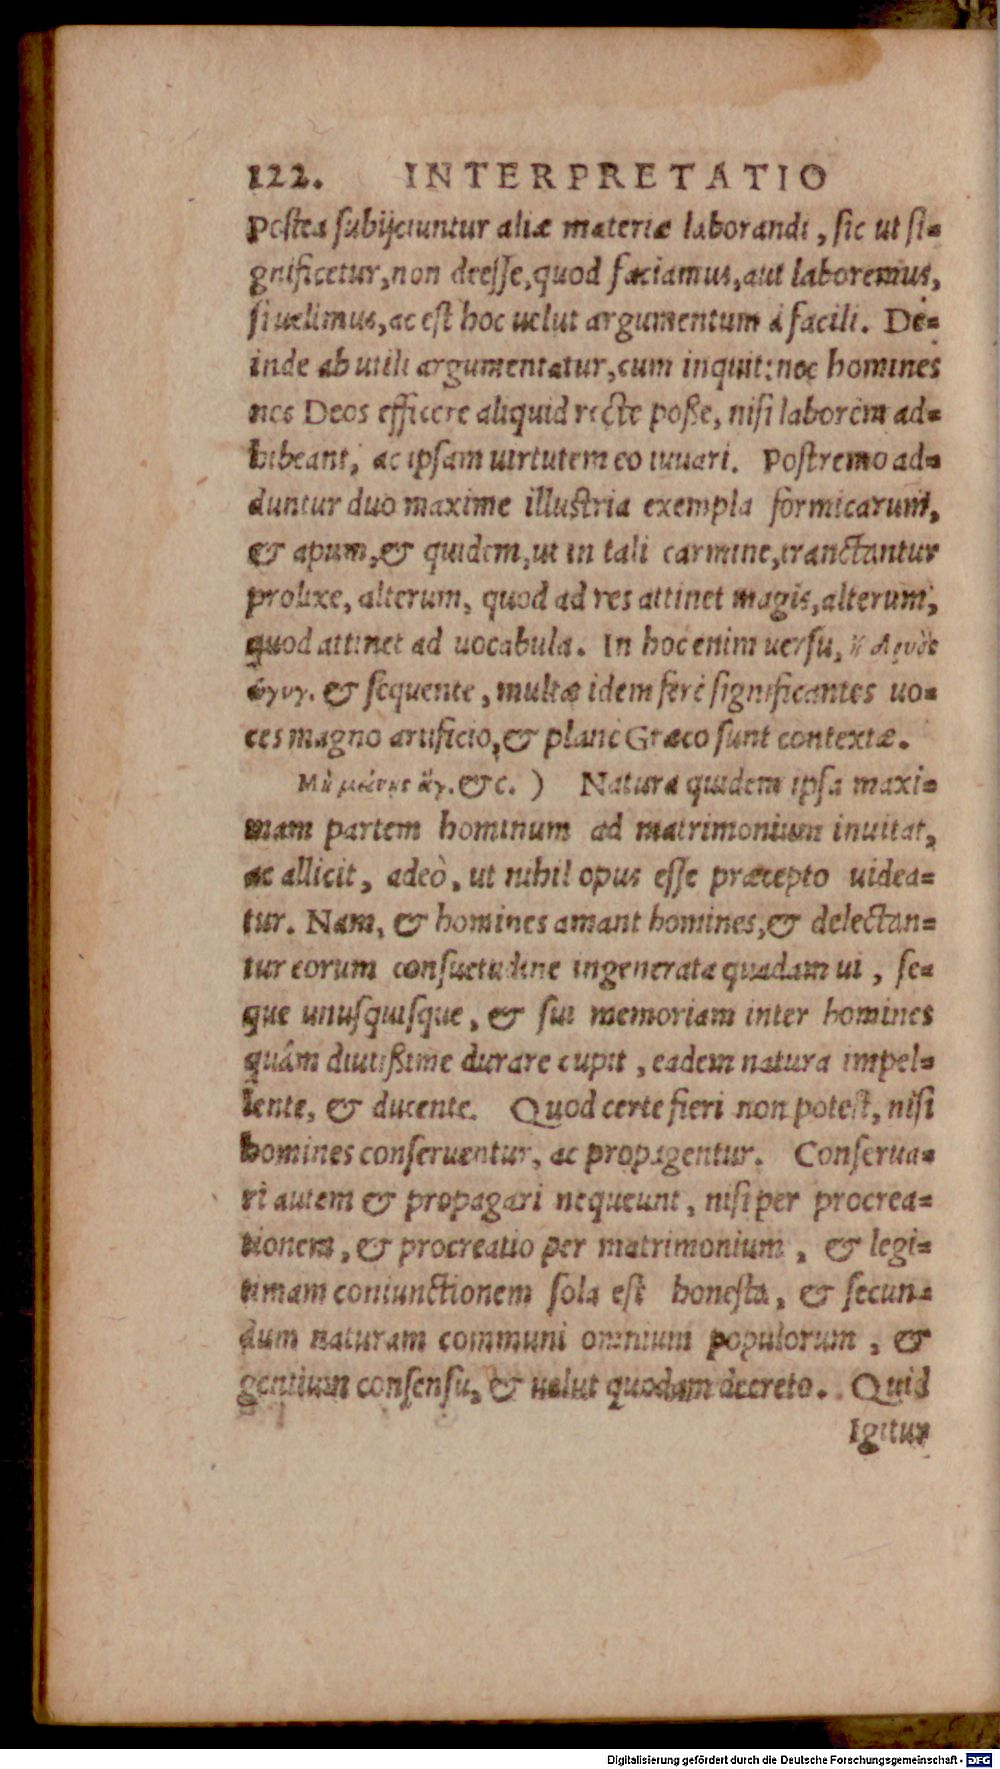 122. INTERPRETATIO
Postea subijciuntur aliæ materiæ laborandi, sic ut si=
gnificetur, non deesse, quod faciamus, aut laboremus,
si uelimus, ac est hoc uelut argumentum à facili. De=
inde ab utili argumentatur, cum inquit: nec homines
nec Deos efficere aliquid recte posse, nisi laborem ad=
hibeant, ac ipsam uirtutem eo iuuari. Postremo ad=
duntur duo maxime illustria exempla formicarum,
& apum, & quidem, ut in tali carmine, tranctantur
prolixe, alterum, quod ad res attinet magis, alterum,
quod attinet ad uocabula. In hoc enim uersu,
& sequente, multæ idem ferè significantes uo=
ces magno artificio, & planè Græco sunt contextæ.
&c. ) Natura quidem ipsa maxi=
mam partem hominum ad matrimonium inuitat,
ac allicit, adeò, ut nihil opus esse præcepto uidea=
tur. Nam, & homines amant homines, & delectan=
tur eorum consuetudine ingenerata quadam ui, se=
que unusquisque, & sui memoriam inter homines
quâm diutissime durare cupit, eadem natura impel=
lente, & ducente. Quod certe fieri non potest, nisi
homines conseruentur, ac propagentur. Conserua=
ri autem & propagari nequeunt, nisi per procrea=
tionem, & procreatio per matrimonium, & legi=
timam coniunctionem sola est honesta, & secun=
dum naturam communi omnium populorum, &
gentium consensu, & uelut quodam decreto. Quid
Igitur
Digitalisierung gefördert durch die Deutsche Forschungsgemeinschaft - DFG